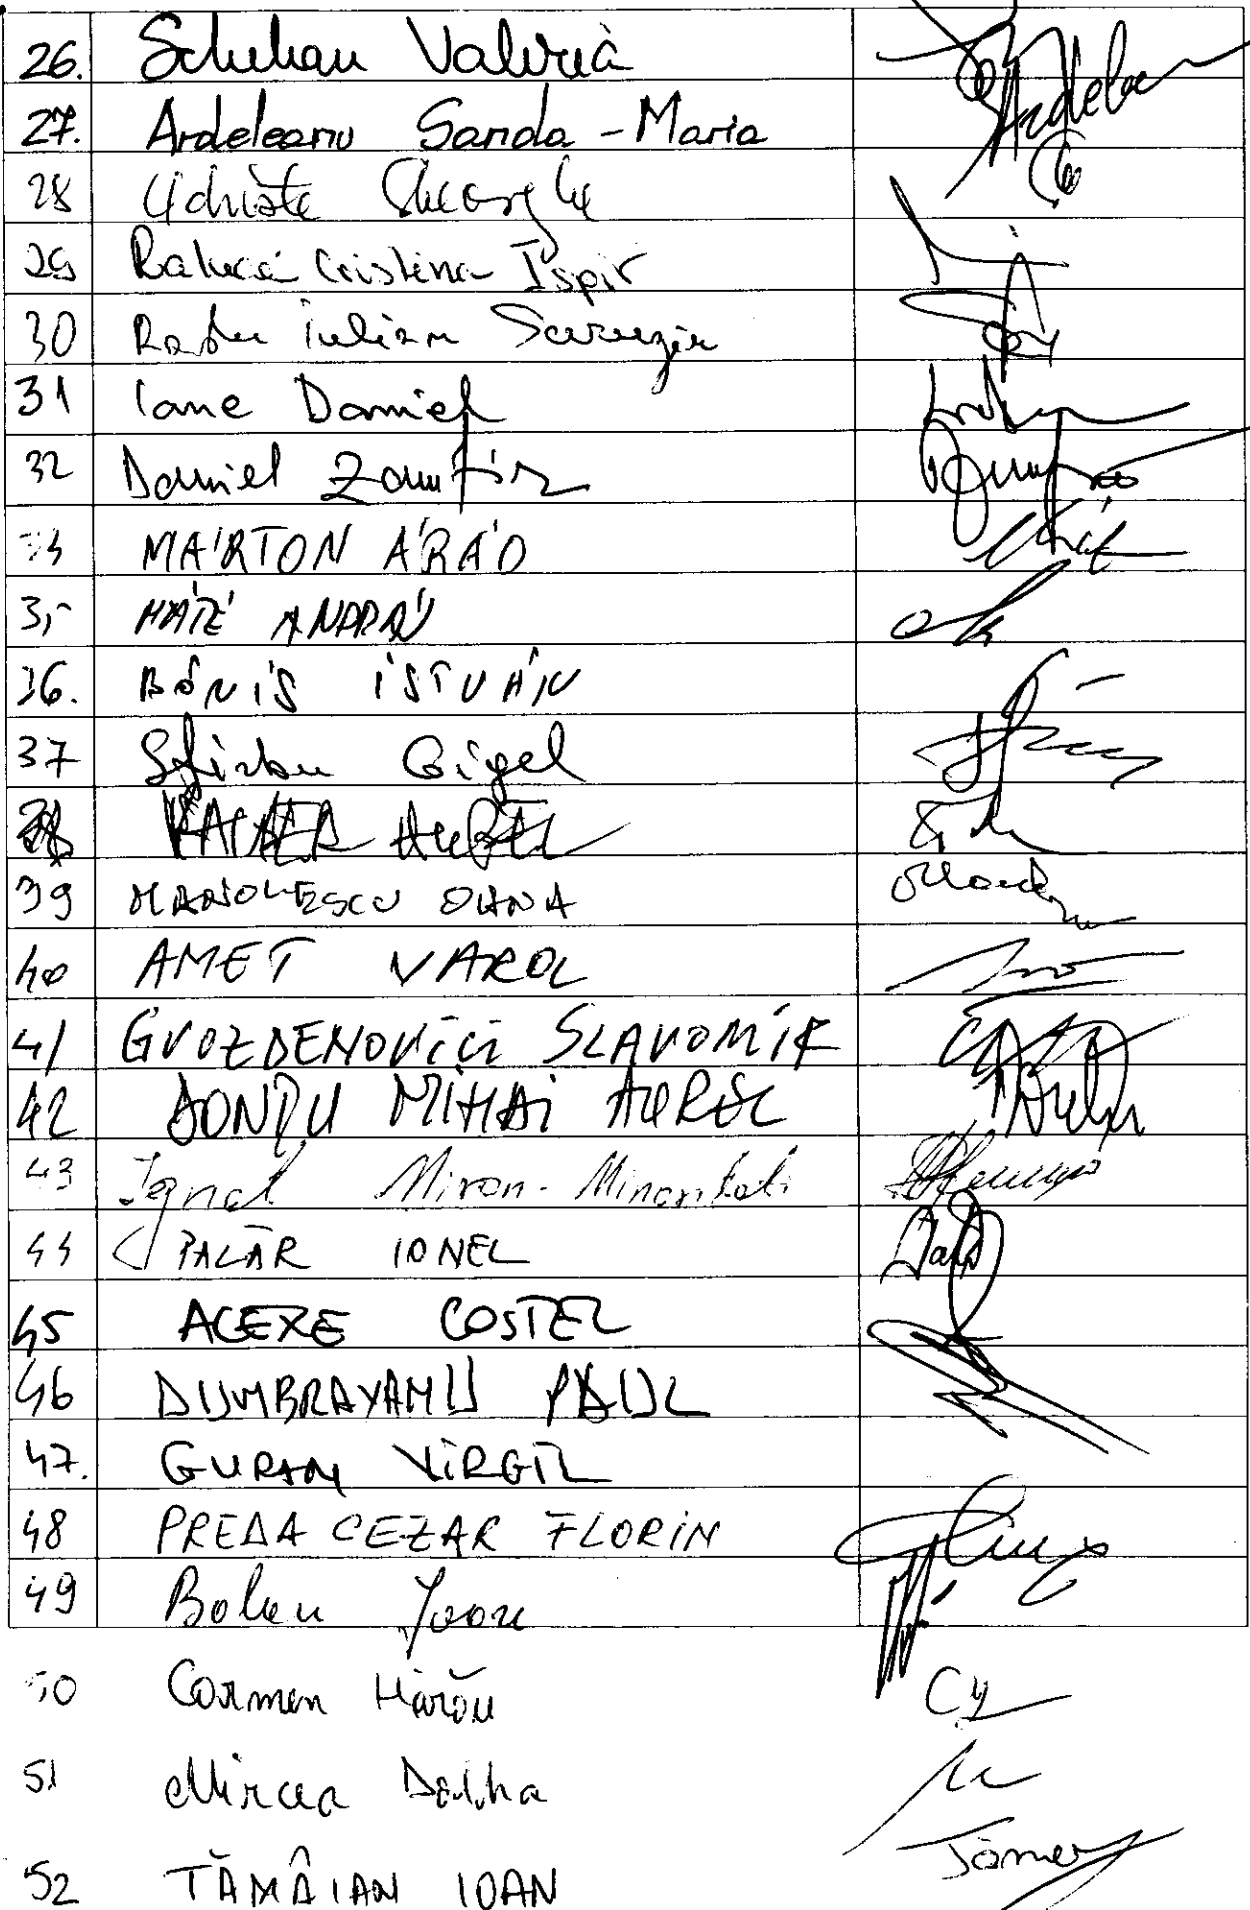 26. Schelean Valeria
27. Ardeleanu Sanda-Maria Ardelea
28 Udriște Gheorghe
29 Raluca Cristina Ispir
30 Radu Iulian
31 Iane Daniel
32 Daniel Zamfir
MÁRTON ÁRÁD
MÁTÉ ANDRÁS
36. BÓNIS ISTVÁN
37 Sfîrlou Gigel
38
39 MANOLESCU OANA
40 AMET VAROL
41 GVOZDENOVICI SLAVOMIR
42 DONȚU MIHAI AUREL
43 Ignat Miron
44 PALĂR IONEL
45 ALEXE COSTEL
46 DUMBRAVANU PAUL
47. GURAN VIRGIL
48 PREDA CEZAR FLORIN
49
50 Carmen Hărău
51 Mircea
52 TĂMÂIAN IOAN